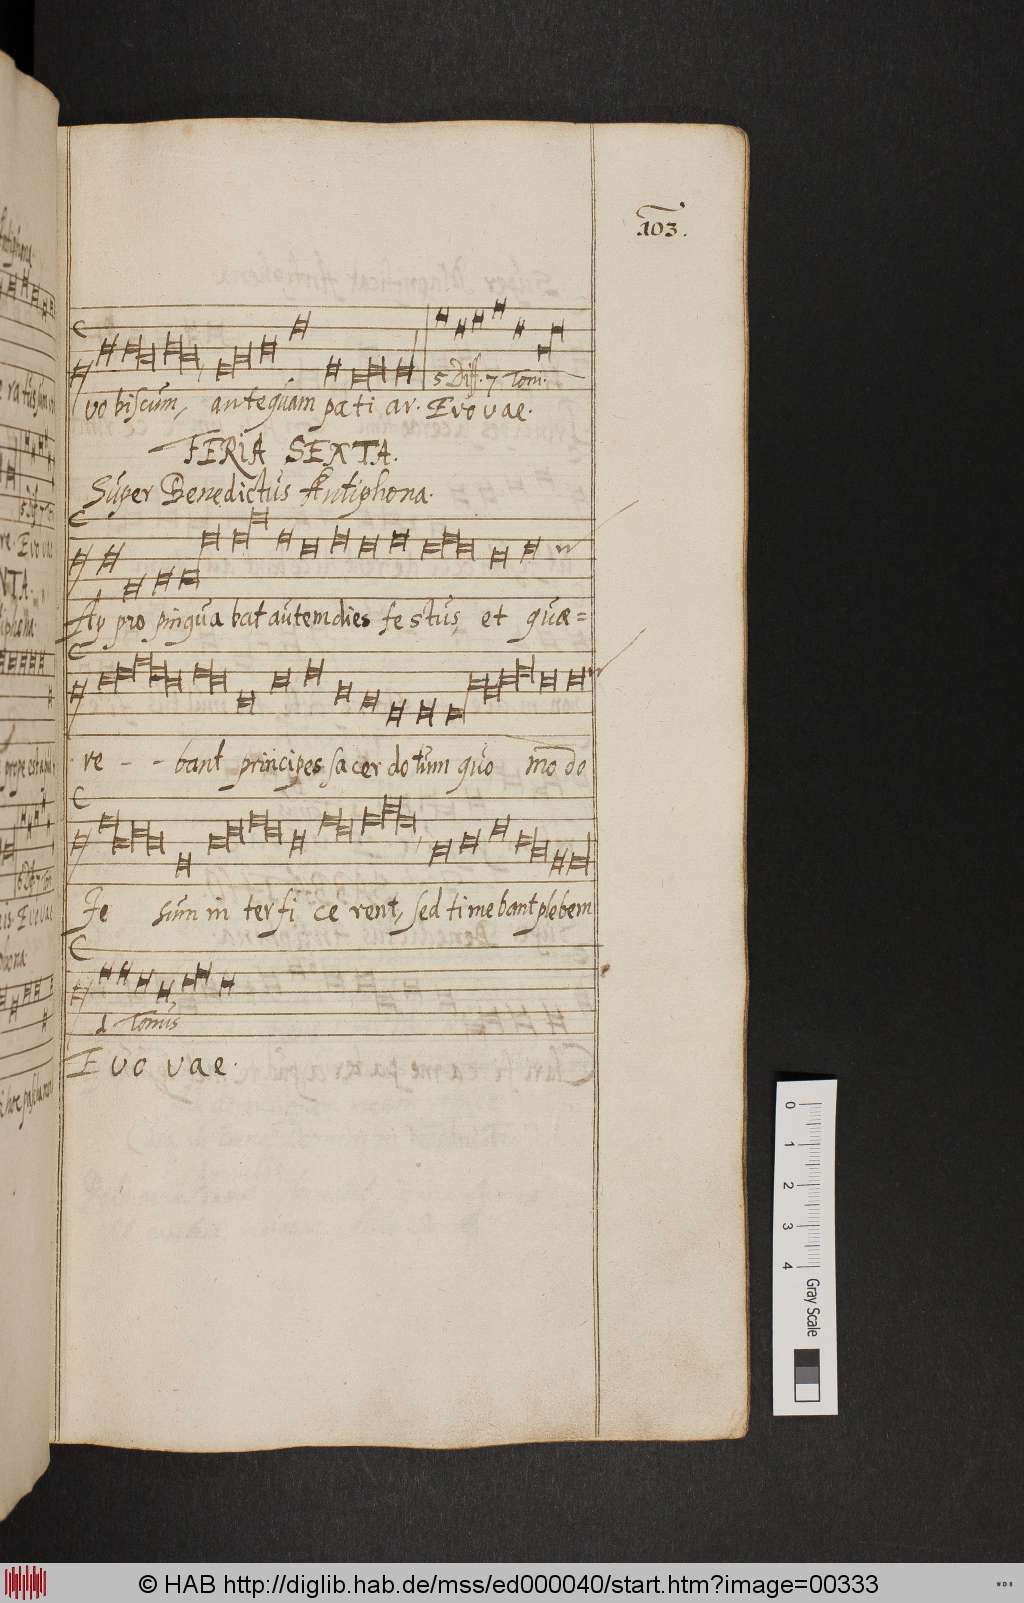 103.
5 Diff. 7 Toni.
vo biscum, antequam pati ar. Evovae.
FERIA SEXTA.
Super Benedictus Antiphona.
Ap pro pinqua bat autem dies festus, et quæ=
re - - bant principes sacer dotum quo modo
Je sum in terfi ce rent, sed timebant plebem
1 Tonus
E vo vae.
0 1 2 3 4 Gray Scale
© HAB http://diglib.hab.de/mss/ed000040/start.htm?image=00333